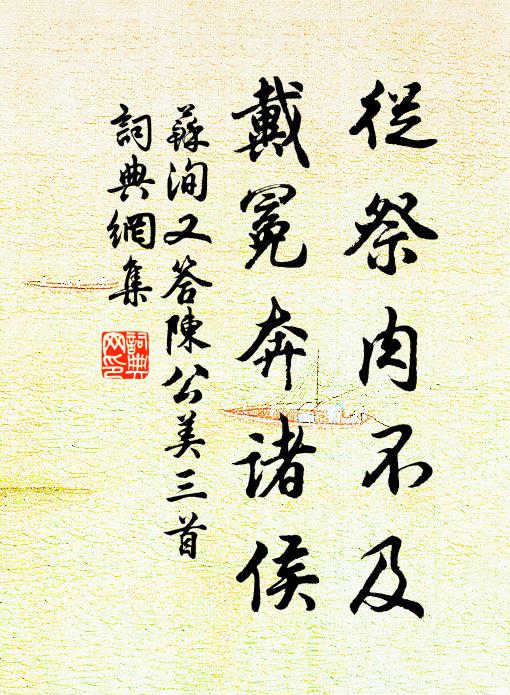 從祭肉不及
戴冕奔諸侯
蘇洵又答陳公美三首
詞典網集
詞典
网印